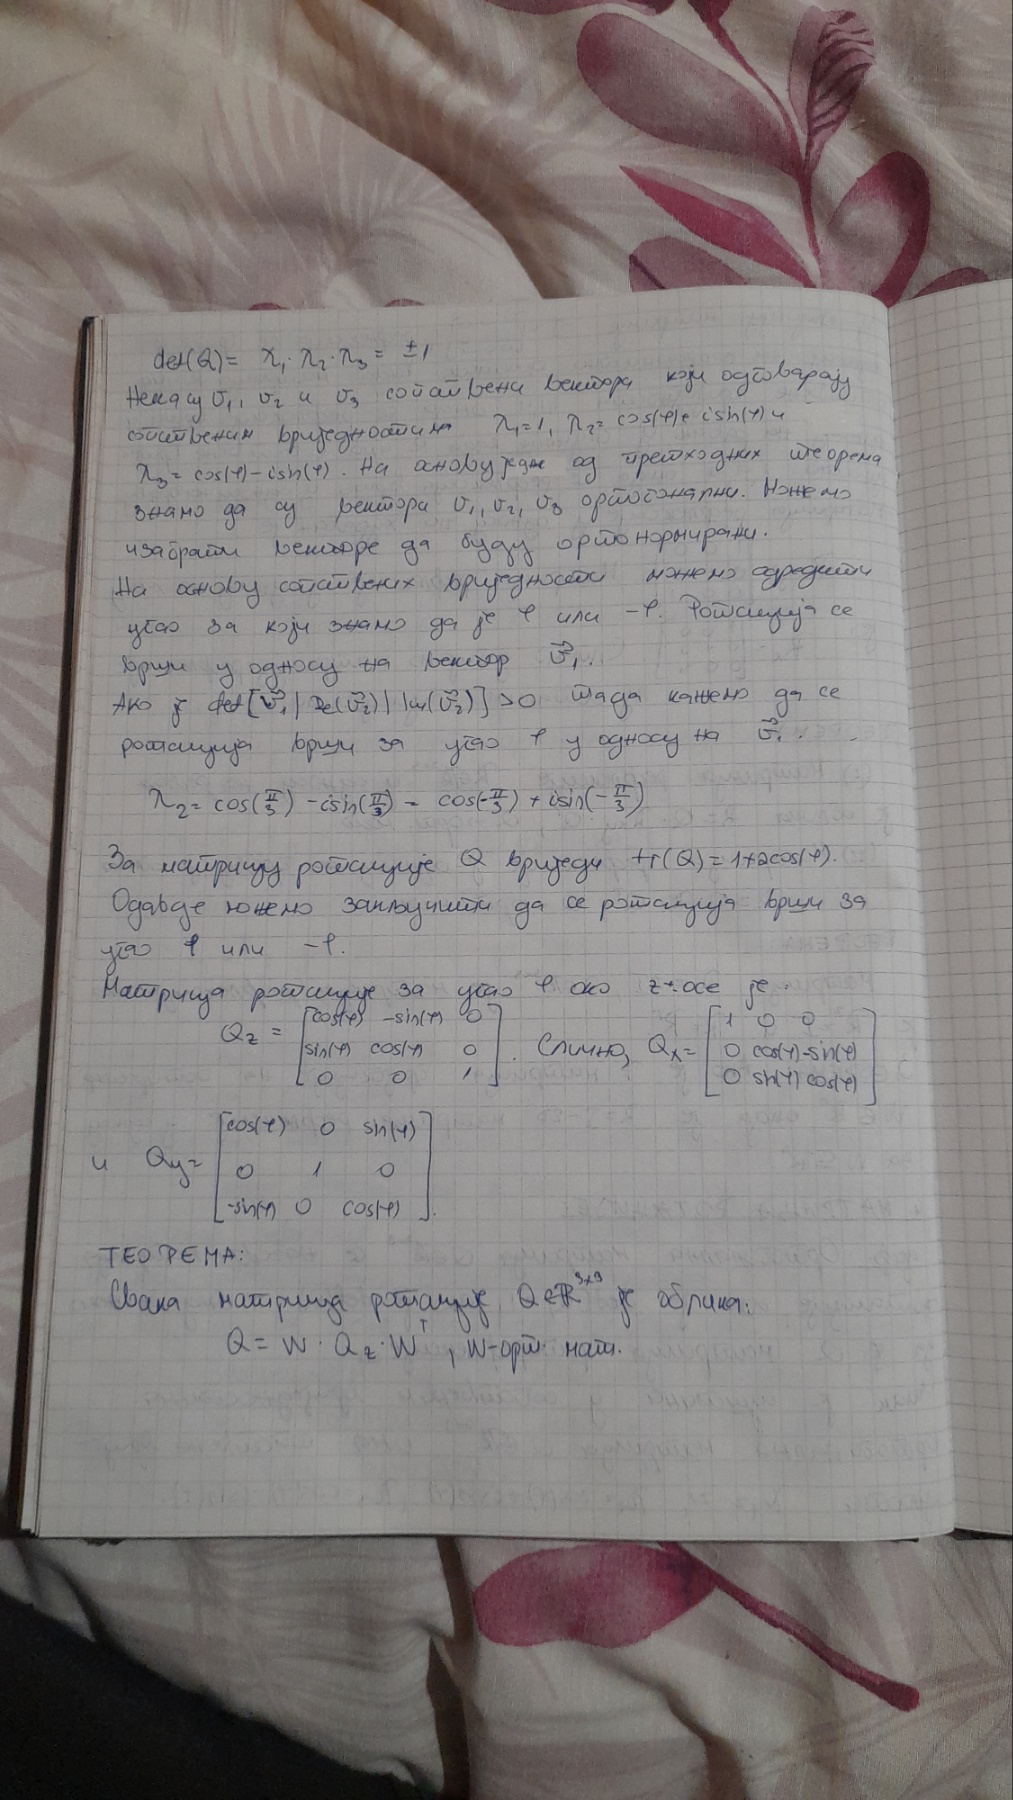 det(Q) = λ₁·λ₂·λ₃ = ±1
Нека су v₁, v₂ и v₃ сопствени вектори који одговарају
сопственим вриједностима λ₁=1, λ₂= cos(φ)+ isin(φ) и
λ₃= cos(φ)-isin(φ). На основу једне од претходних теорема
знамо да су вектори v₁, v₂, v₃ ортогонални. Можемо
изабрати векторе да буду ортонормирани.
На основу сопствених вриједности можемо одредити
угао за који знамо да је φ или -φ. Ротација се
врши у односу на вектор v⃗₁.
Ако је det[v⃗₁| Re(v⃗₂)| Im(v⃗₂)] >0 тада кажемо да се
ротација врши за угао φ у односу на v⃗₁.
λ₂= cos(π/3) -isin(π/3) = cos(-π/3) + isin(-π/3)
За матрицу ротације Q вриједи tr(Q) = 1+2cos(φ).
Одавде можемо закључити да се ротација врши за
угао φ или -φ.
Матрица ротације за угао φ око z-осе је
Qz = [cos(φ) -sin(φ) 0
sin(φ) cos(φ) 0
0 0 1]. Слично, Qx= [1 0 0
0 cos(φ) -sin(φ)
0 sin(φ) cos(φ)]
и Qy= [cos(φ) 0 sin(φ)
0 1 0
-sin(φ) 0 cos(φ)].
ТЕОРЕМА:
Свака матрица ротације Q∈ℝ³ˣ³ је облика:
Q = W · Qz · Wᵀ , W-орт. мат.